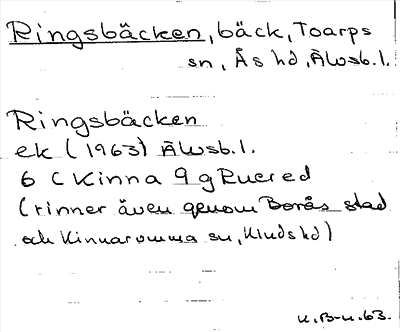 Ringsbäcken, bäck, Toarps
sn, Ås hd, Älvsb. l.
Ringsbäcken
ek (1963) Älvsb. l.
6 C Kinna 9 g Rucred
(rinner även genom Borås stad
och Kinnarumma sn, Marks hd)
u.B-u.63.